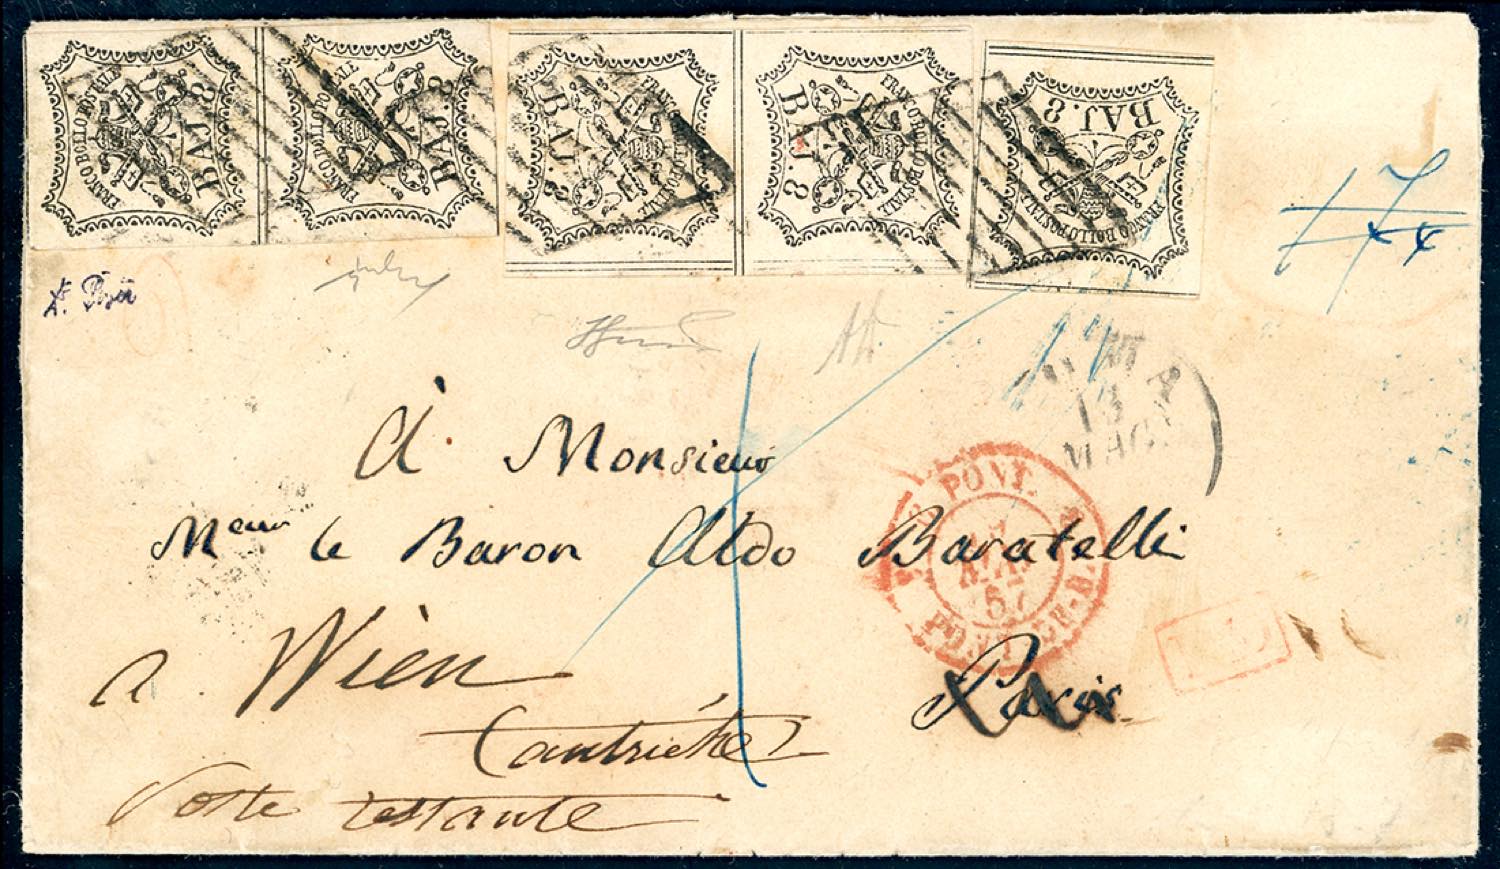 FRANCO BOLLO POSTALE
BAJ. 8
FRANCO BOLLO POSTALE
BAJ. 8
FRANCO BOLLO POSTALE
BAJ. 8
FRANCO BOLLO POSTALE
BAJ. 8
FRANCO BOLLO POSTALE
BAJ. 8
13
MAG
À Monsieur
Meur le Baron Aldo Baratelli
PONT.
57
Paris
a Wien
(autriche)
Poste restante